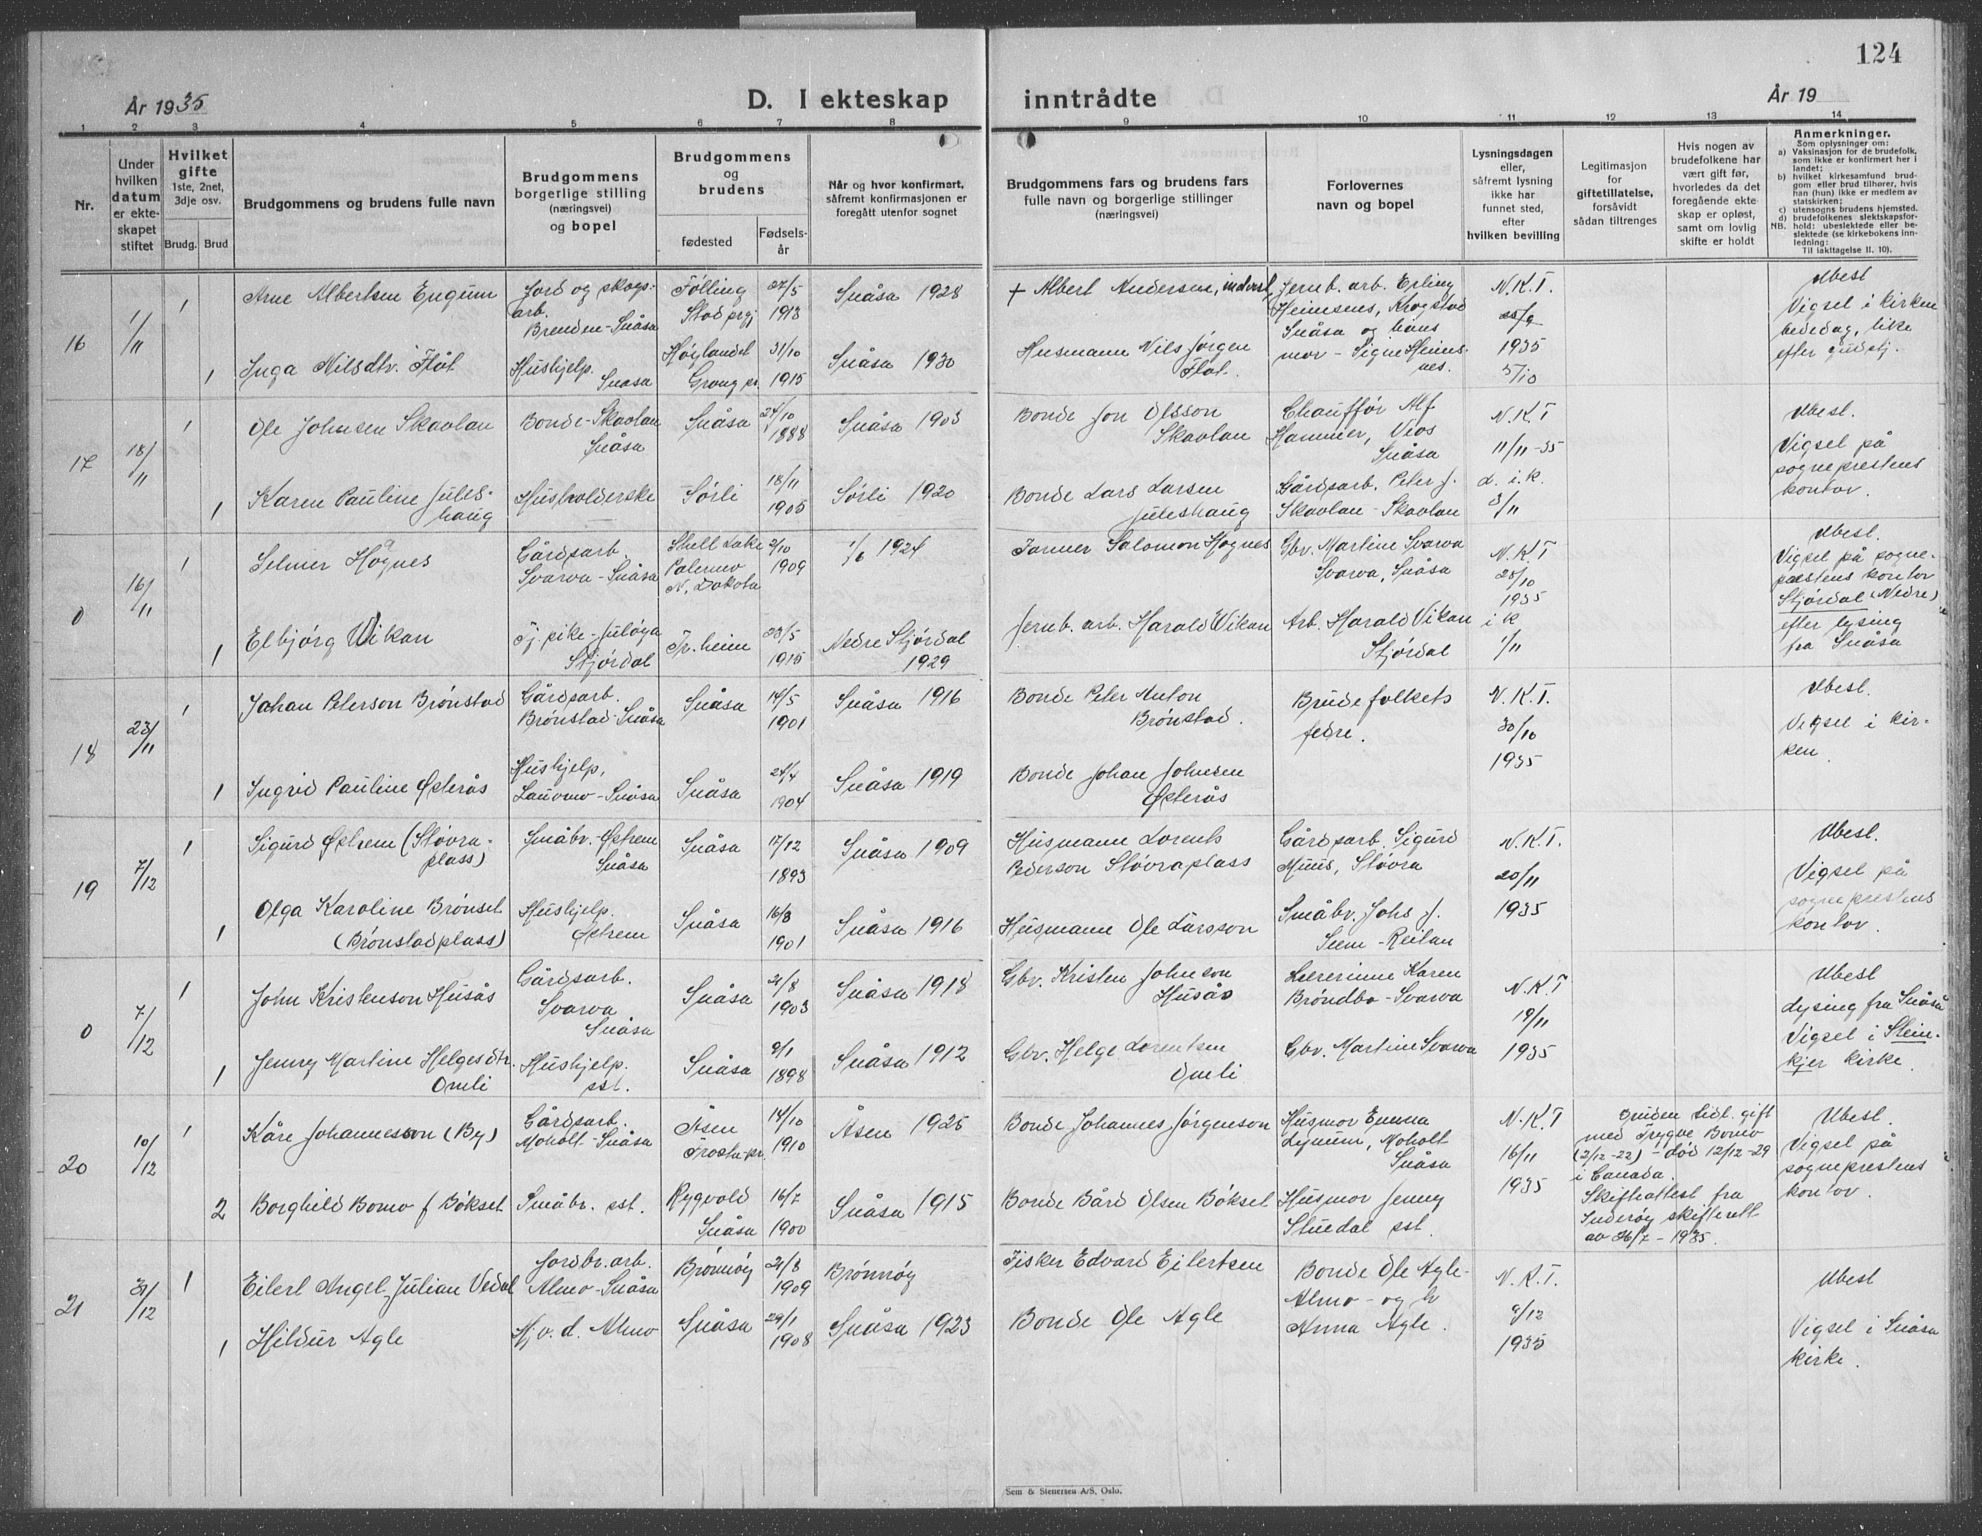 124
År 1935
D. I ekteskap
inntrådte
År 19
1 2 3 4 5 6 7 8 9 10 11 12 13 14
Nr.
Under hvilken datum er ekteskapet stiftet
Hvilket gifte
1ste, 2net, 3dje osv.
Brudg. Brud
Brudgommens og brudens fulle navn
Brudgommens borgerlige stilling (næringsvei) og bopel
Brudgommens og brudens
fødested
Fødselsår
Når og hvor konfirmert, såfremt konfirmasjonen er foregått utenfor sognet
Brudgommens fars og brudens fars fulle navn og borgerlige stillinger (næringsvei)
Forlovernes navn og bopel
Lysningsdagen eller, såfremt lysning ikke har funnet sted, efter hvilken bevilling
Legitimasjon for giftetillatelse, forsåvidt sådan tiltrenges
Hvis nogen av brudefolkene har vært gift før, hvorledes da det foregående ekteskap er opløst, samt om lovlig skifte er holdt
Anmerkninger.
Som oplysninger om:
a) Vaksinasjon for de brudefolk, som ikke er konfirmert her i landet;
b) hvilket kirkesamfund brudgom eller brud tilhører, hvis han (hun) ikke er medlem av statskirken;
c) utensogns brudens hjemsted.
d) brudefolkenes slektskapsforhold: ubeslektede eller beslektede (se kirkebokens innledning:
NB.
Til iakttagelse II. 10).
16 1/11 1 Arne Albertsen Engum
Jord og skogsarb. Brenden-Snåsa
Følling Stod prgj 27/5 1913
Snåsa 1928
+ Albert Andersen, inderst
Jernb. arb. Erling Heimsnes, Krogstad Snåsa og hans mor - Signe Heimsnes.
N.K.T. 28/9 1935 5/10
Ubesl Vigsel i kirken bededag, like efter gudstj.
1 Inga Nilsdtr. Flåt
Hushjelp. Snåsa
Høylandet Grong pr. 31/10 1915
Snåsa 1930
Husmann Nils Jørgen Flåt.
17 18/11 1 Ole Johnsen Skavlan
Bonde-Skavlan Snåsa
Snåsa 24/10 1888
Snåsa 1903
Bonde Jon Olsson Skavlan
Chauffør Alf Hammer, Vios Snåsa
N.K.T 11/11-35
Ubesl. Vigsel på sogneprestens kontor.
1 Karen Pauline Juleshaug
Husholderske
Sørli 18/11 1905
Sørli 1920
Bonde Lars Larsen Juleshaug
Gårdsarb. Peter J. Skavlan - Skavlan
d. i. k. 3/11
0 16/11 1 Selmer Høgnes
Gårdsarb. Svarva-Snåsa
Shell Lake Palermo N. Dakota 2/10 1909
1/6 1924
Farmer Salomon Høgnes
Gbr. Martin Svarva Svarva, Snåsa
N.K.T 28/10 1935
Ubesl. Vigsel på sogneprestens kontor Stjørdal (Nedre) efter lysing fra Snåsa
1 Elbjørg Wikan
Tj.pike-Juløya Stjørdal
Tr.heim 23/5 1915
Nedre Stjørdal 1929
Jernb. arb. Harald Wikan
Arb. Harald Vikan Stjørdal
i k 1/11
18 23/11 1 Johan Peterson Brønstad
Gårdsarb. Brønstad-Snåsa
Snåsa 14/5 1901
Snåsa 1916
Bonde Peter Anton Brønstad.
Brudefolkets fedre.
N.K.T. 30/10 1935
Ubesl. Vigsel i kirken.
1 Ingrid Pauline Østerås
Hushjelp, Lauvmo-Snåsa
Snåsa 24/4 1904
Snåsa 1919
Bonde Johan Johnsen Østerås
19 7/12 1 Sigurd Østrem (Støvraplass)
Småbr.-Østrem Snåsa
Snåsa 17/12 1893
Snåsa 1909
Husmann Lorents Pederson Støvraplass
Gårdsarb. Sigurd Muus, Støvra
N.K.T. 20/11 1935
Ubesl. Vigsel på sogneprestens kontor.
1 Olga Karoline Brønset (Brønstadplass)
Hushjelp. Østrem
Snåsa 16/3 1901
Snåsa 1916
Husmann Ole Larsson
Småbr. Johs J. Seem - Reitan
0 7/12 1 John Kristenson Husås
Gårdsarb. Svarva Snåsa
Snåsa 21/8 1903
Snåsa 1918
Gbr. Kristen Johnson Husås
Lererinne Karen Brøndbo-Svarva
N.K.T 19/11 1935
Ubesl Lysing fra Snåsa Vigsel i Steinkjer kirke.
1 Jenny Martine Helgesdtr. Omli
Hushjelp. sst.
Snåsa 9/1 1898
Snåsa 1912
Gbr. Helge Lorentsen Omli
Gbr. Martin Svarva
20 10/12 1 Kåre Johannesson (By)
Gårdsarb. Moholt-Snåsa
Åsen Frosta-pr. 14/10 1910
Åsen 1925
Bonde Johannes Jørgenson
Husmor Emma Lynum, Moholt Snåsa
N.K.T 16/11 1935
Bruden tidl. gift med Trygve Bomo (2/12-22) - død 12/12-29 i Canada. Skifteattest fra Inderøy skifterett av 26/7 - 1935.
Ubesl Vigsel på sogneprestens kontor.
2 Borghild Bomo f Bøkset
Småbr. sst.
Rygvold Snåsa 16/7 1900
Snåsa 1915
Bonde Bård Olsen Bøkset
Husmor Jenny Stuedal sst.
21 31/12 1 Eilert Angel-Julian Vedal
Jordbr. arb. Almo-Snåsa
Brønnøy 21/8 1909
Brønnøy
Fisker Edvard Eilertsen
Bonde Ole Agle-Almo - og h Anna Agle.
N.K.T. 9/12 1935
Ubesl Vigsel i Snåsa kirke.
1 Hildur Agle
Hj.v.d. Almo
Snåsa 29/1 1908
Snåsa 1923
Bonde Ole Agle
Sem & Stenersen A/S, Oslo.